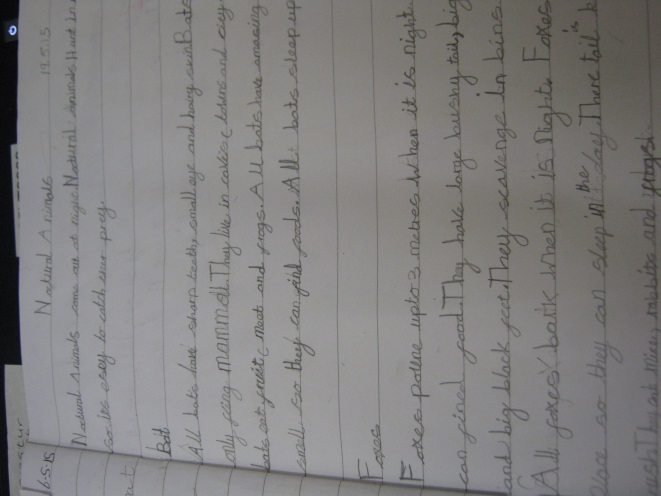 19.5.15
Natural Animals
Natural Animals come out at night. Natural Animals Hunt in
so its easy to catch their prey.
Bat
All bats have sharp teeth, small eye and hairy skin Bats
only mammal. They live in caves and
bats eat fruit, meat and frogs. All bats have amazing
smell so they can find foods. All bats sleep up
Foxes
Foxes upto 3 metres when it is night.
can find food. They have large bushy tail, big
and big black feet. They scavenge in bins.
All foxes bark when it is night. Foxes
place so they can sleep in the day. There tail is b
They eat mice, rabbits and frogs!
16.5.15